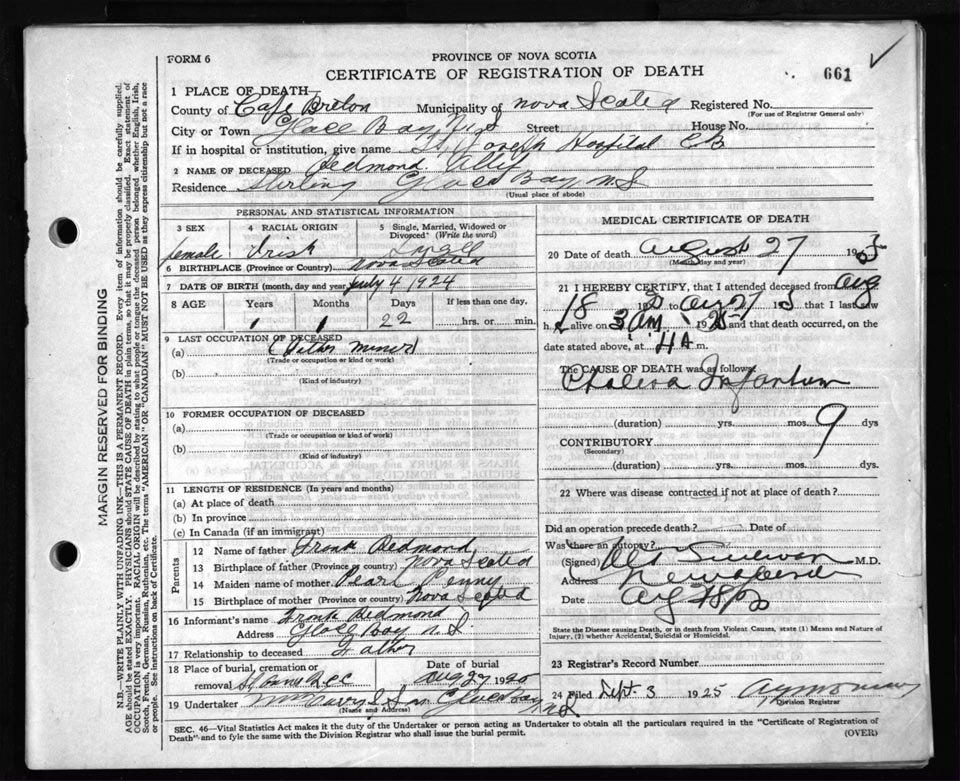 FORM 6
PROVINCE OF NOVA SCOTIA
CERTIFICATE OF REGISTRATION OF DEATH
661
1 PLACE OF DEATH
County of Cape Breton Municipality of Nova Scotia Registered No.
(For use of Registrar General only)
City or Town Glace Bay N S Street House No.
If in hospital or institution, give name St Joseph Hospital C B
2 NAME OF DECEASED Redmond
Residence Sterling Glace Bay N. S
(Usual place of abode)
PERSONAL AND STATISTICAL INFORMATION
3 SEX
4 RACIAL ORIGIN
5 Single, Married, Widowed or Divorced? (Write the word)
female Irish Single
6 BIRTHPLACE (Province or Country) Nova Scotia
7 DATE OF BIRTH (month, day and year) July 4 1924
8 AGE Years Months Days If less than one day,
1 1 22 hrs. or min.
9 LAST OCCUPATION OF DECEASED
(a) miner)
(Trade or occupation or kind or work)
(b)
(Kind of industry)
10 FORMER OCCUPATION OF DECEASED
(a)
(Trade or occupation or kind of work)
(b)
(Kind of industry)
11 LENGTH OF RESIDENCE (In years and months)
(a) At place of death
(b) In province
(c) In Canada (if an immigrant)
Parents
12 Name of father Frank Redmond
13 Birthplace of father (Province or country) Nova Scotia
14 Maiden name of mother Pearl Penny
15 Birthplace of mother (Province or country) Nova Scotia
16 Informant's name Frank Redmond
Address Glace Bay N. S
17 Relationship to deceased Father
18 Place of burial, cremation or removal
Date of burial
Aug 27 1925
19 Undertaker & Son Glace Bay
(Name and Address)
MEDICAL CERTIFICATE OF DEATH
20 Date of death August 27 19
(Month, day and year)
21 I HEREBY CERTIFY, that I attended deceased from Aug
18 that I last saw
h alive on 3 AM 1925 and that death occurred, on
date stated above, at 4 A m.
The CAUSE OF DEATH was as follows:
Cholera Infantum
(duration) yrs. mos. 9 dys
CONTRIBUTORY
(Secondary)
(duration) yrs. mos. dys.
22 Where was disease contracted if not at place of death?
Did an operation precede death? Date of
Was there an autopsy?
(Signed) Sullivan M.D.
Address
Date Aug
State the Disease causing Death, or in death from Violent Causes, state (1) Means and Nature of Injury, (2) whether Accidental, Suicidal or Homicidal.
23 Registrar's Record Number
24 Filed Sept. 3 1925
Division Registrar
SEC. 46—Vital Statistics Act makes it the duty of the Undertaker or person acting as Undertaker to obtain all the particulars required in the "Certificate of Registration of Death" and to fyle the same with the Division Registrar who shall issue the burial permit.
(OVER)
MARGIN RESERVED FOR BINDING
N.B.—WRITE PLAINLY WITH UNFADING INK—THIS IS A PERMANENT RECORD. Every item of information should be carefully supplied.
AGE should be stated EXACTLY. PHYSICIANS should STATE CAUSE OF DEATH in plain terms, so that it may be properly classified. Exact statement of
OCCUPATION is very important. RACIAL ORIGIN will be described by stating to what people or tongue the deceased person belonged whether English, Irish,
Scotch, French, German, Russian, Ruthenian, etc. The terms "AMERICAN" OR "CANADIAN" MUST NOT BE USED as they express citizenship but not a race
or people. See instructions on back of Certificate.